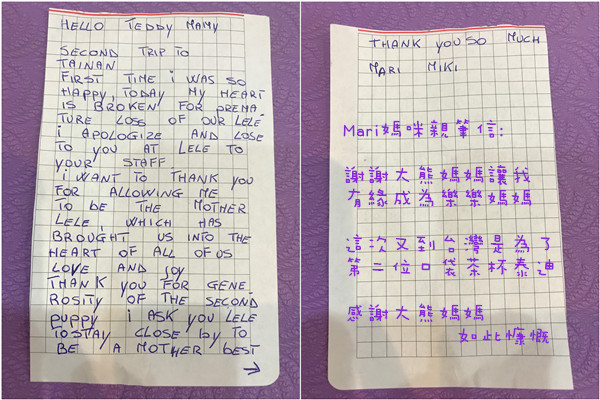 HELLO TEDDY MAMY
SECOND TRIP TO
TAINAN
FIRST TIME i WAS SO
HAPPY, TODAY MY HEART
IS BROKEN FOR PREMA
TURE LOSS OF OUR LELE
i APOLOGIZE AND LOSE
TO YOU AT LELE TO
YOUR STAFF.
i WANT TO THANK YOU
FOR ALLOWING ME
TO BE THE MOTHER
LELE, WHICH HAS
BROUGHT US INTO THE
HEART OF ALL OF US
LOVE AND JOY
THANK YOU FOR GENE
ROSITY OF THE SECOND
PUPPY i ASK YOU LELE
TO STAY CLOSE by TO
BE A MOTHER BEST
→
THANK YOU SO MUCH
MARI MIKI
Mari媽咪親筆信:
謝謝大熊媽媽讓我
有緣成為樂樂媽媽
這次又到台灣是為了
第二位口袋茶杯泰迪
感謝大熊媽媽
如此慷慨